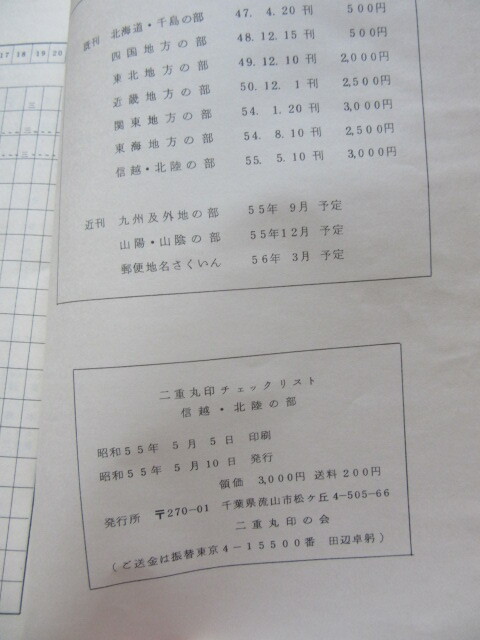 17 18 19 20
既刊 北海道・千島の部 47. 4.20 刊 500円
四国地方の部 48.12.15 刊 500円
東北地方の部 49.12.10 刊 2,000円
近畿地方の部 50.12. 1 刊 2,500円
関東地方の部 54. 1.20 刊 3,000円
東海地方の部 54. 8.10 刊 2,500円
信越・北陸の部 55. 5.10 刊 3,000円
近刊 九州及外地の部 55年 9月 予定
山陽・山陰の部 55年12月 予定
郵便地名さくいん 56年 3月 予定
二重丸印チェックリスト
信越・北陸の部
昭和55年 5月 5日 印刷
昭和55年 5月10日 発行
領価 3,000円 送料 200円
発行所 〒270-01 千葉県流山市松ケ丘 4-505-66
二重丸印の会
(ご送金は振替東京4-15500番 田辺卓躬)